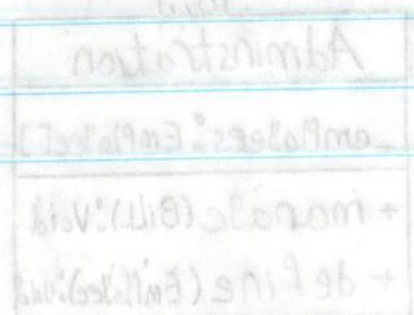 Adminstration
-emPloyees: EmPloyee[]
+ manage (BiLL): Void
+ define (EmPloyee): void